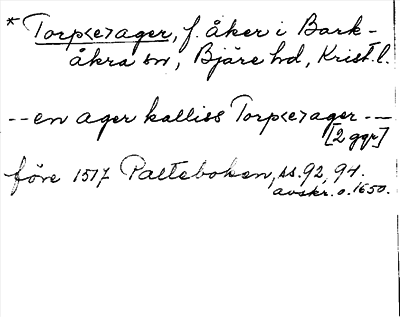 * Torp<e>ager, f. åker i Bark-
åkra sn, Bjäre hd, Krist. l.
-- en ager kalliss Torp<e>ager --
[2 ggr]
före 1517 Palteboken, ss. 92, 94.
avskr. o. 1650.